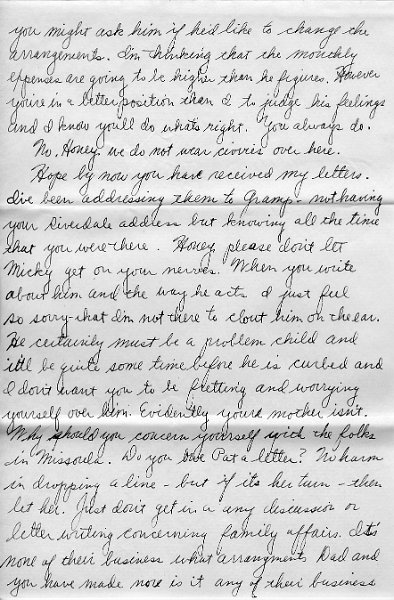 you might ask him if he'd like to change the
arrangements. I'm thinking that the monthly
expenses are going to be higher than he figures. However
you're in a better position than I to judge his feelings
and I know you'll do what's right. You always do.
No, Honey, we do not wear civvies over here.
Hope by now you have received my letters.
I've been addressing them to Gramp - not having
your Riverdale address but knowing all the time
that you were there. Honey, please don't let
Micky get on your nerves. When you write
about him and the way he acts I just feel
so sorry that I'm not there to clout him on the ear.
He certainly must be a problem child and
it'll be quite some time before he is curbed and
I don't want you to be fretting and worrying
yourself over him. Evidently your mother isn't.
Why should you concern yourself with the folks
in Missoula. Do you owe Pat a letter? No harm
in dropping a line - but if its her turn - then
let her. Just don't get in a any discussion or
letter writing concerning family affairs. It's
none of their business what arrangments Dad and
you have made nore is it any of their business